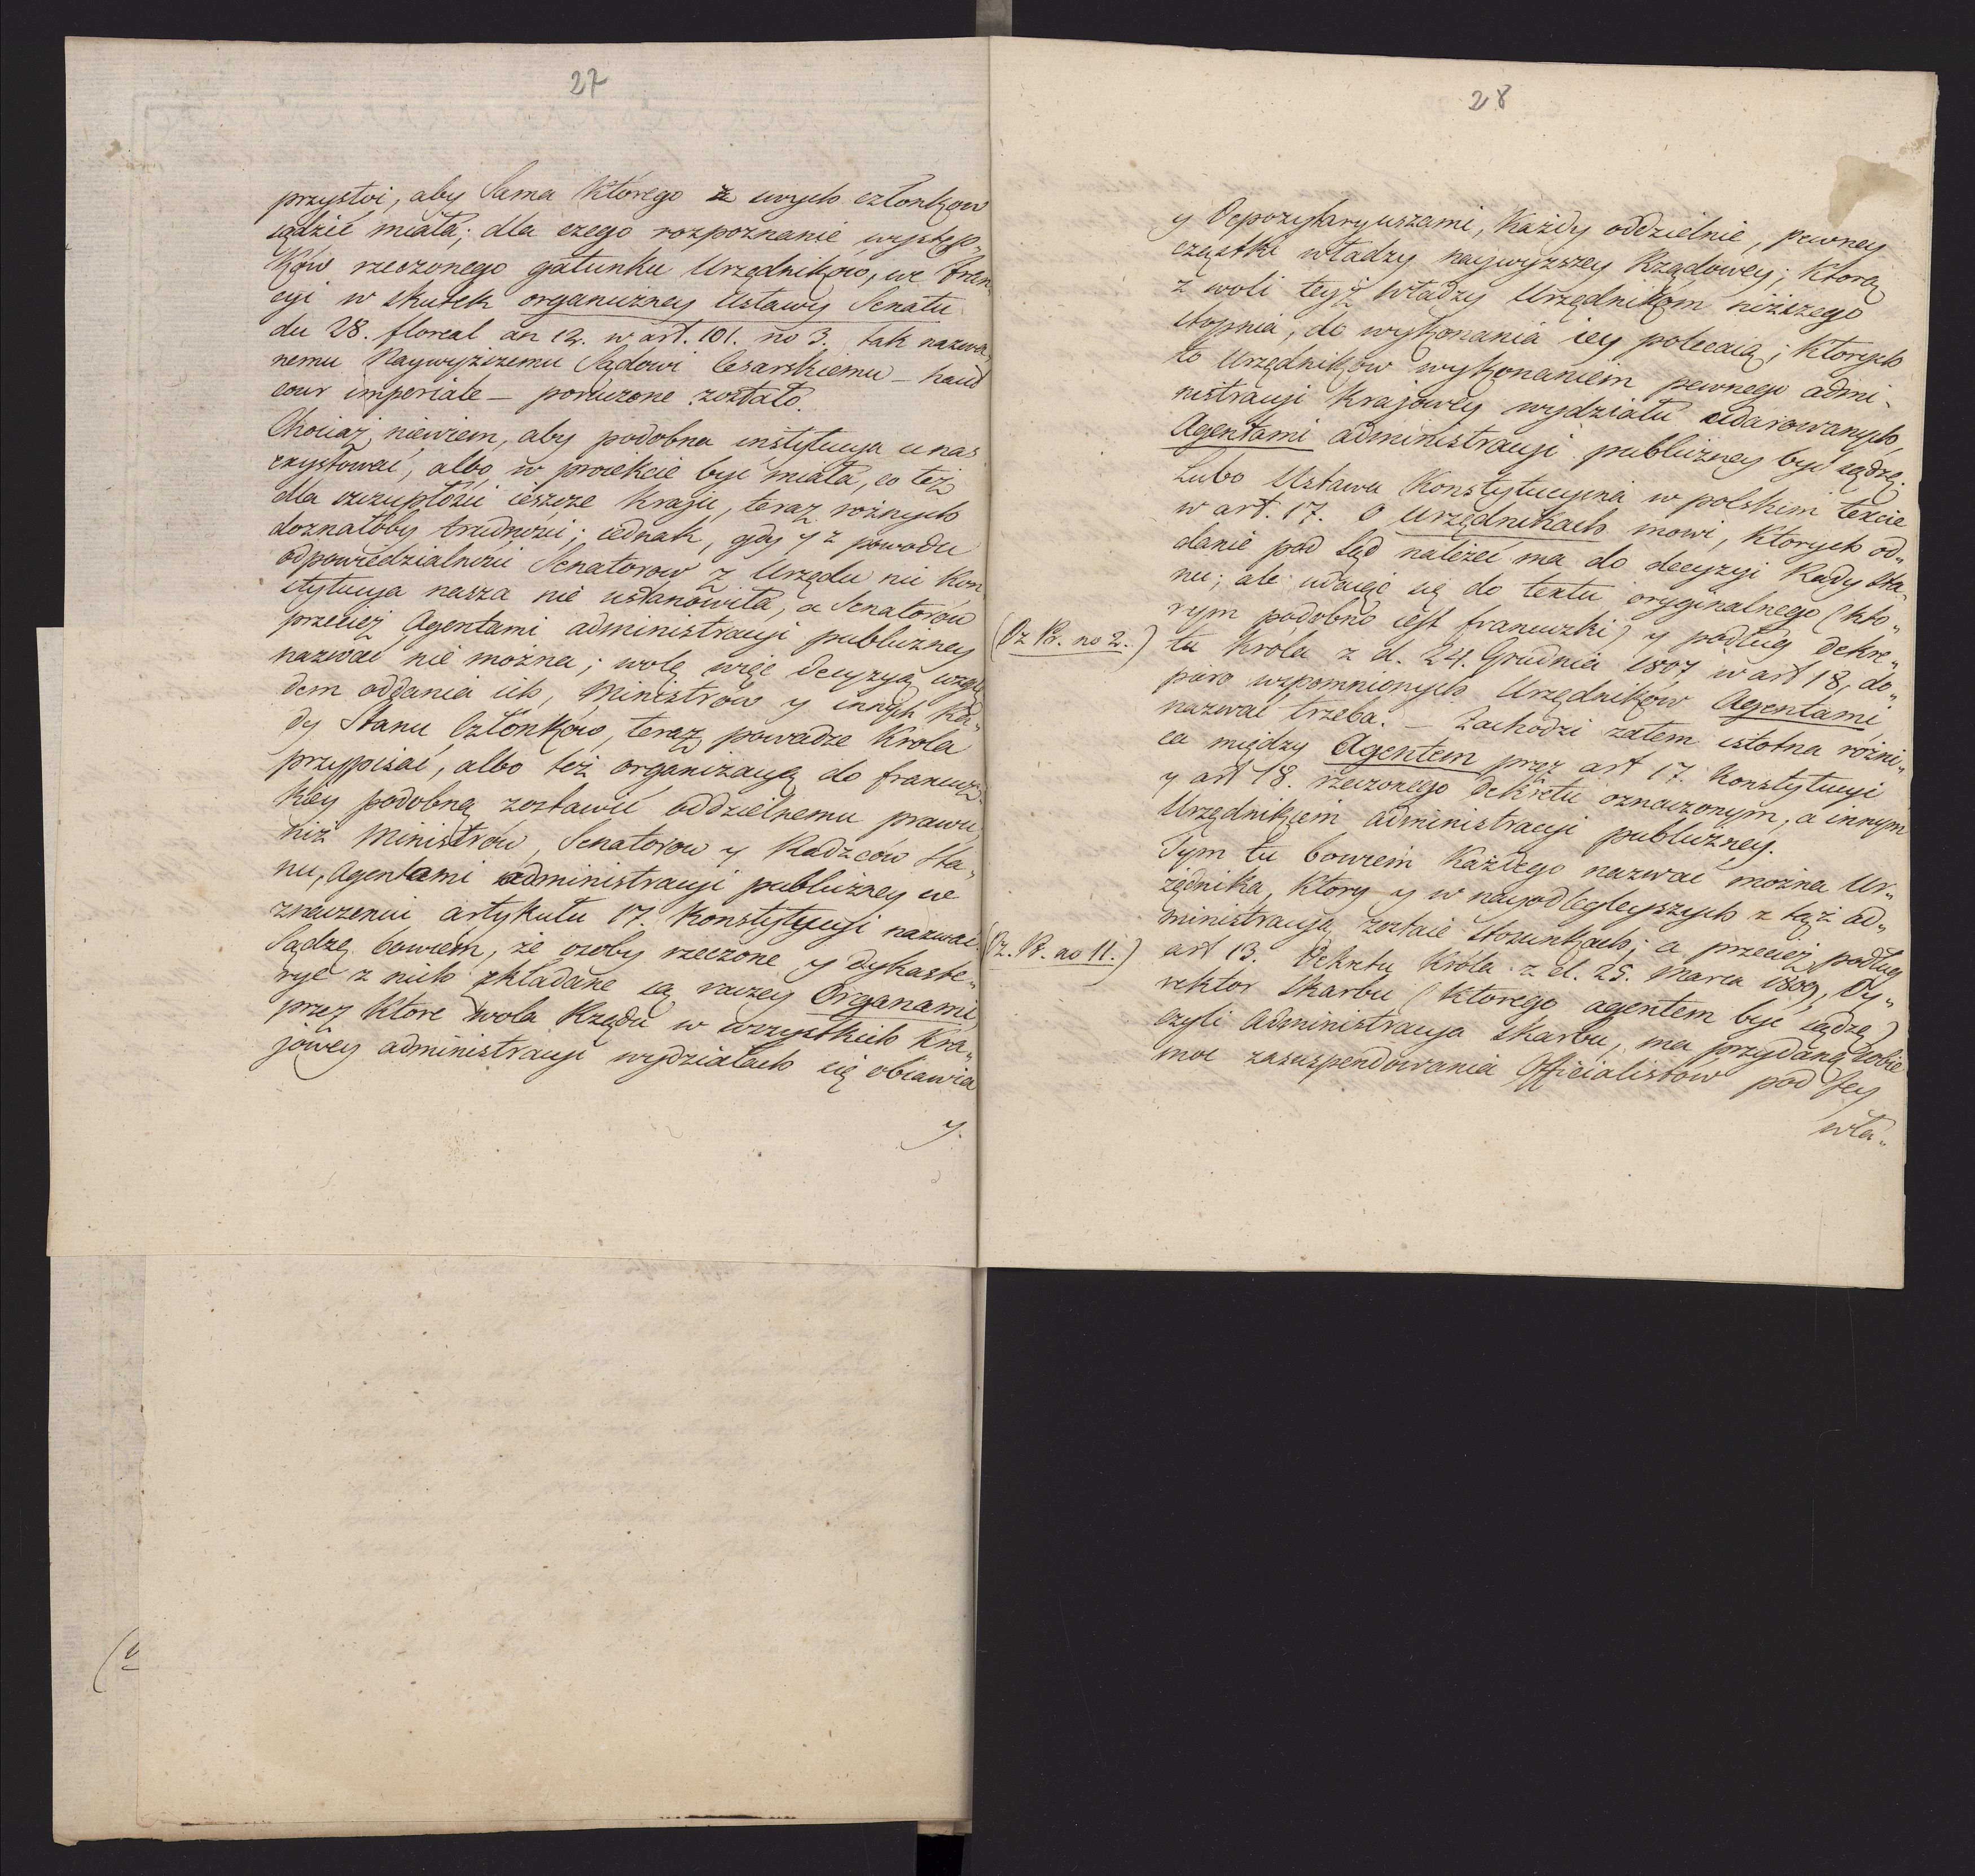 27
przystoi, aby Sama którego z swych członków
sądzić miała; dla czego rozpoznanie występ„
ków rzeczonego gatunku Urzędników, we Fran„
cyi w skutek organiczney Ustawy Senatu
du 28. floreal an 12. w art. 101. no 3. tak nazwa„
nemu Naywyższemu Sądowi Cesarskiemu – haut
cour imperiale – poruczone zostało.
Chociaż niewiem, aby podobna instytucya u nas
exystować, albo w proiekcie być miała, co też
dla szczupłości ieszcze kraju, teraz rożnych
doznałoby trudności; iednak, gdy y z powodu
odpowiedzialności Senatorow z Urzędu nic Kon„
stytucya nasza nie ustanowiła, a Senatorów
przecież Agentami administracyi publiczney
nazwać nie można; wolę więc decyzyą wzglę„
dem oddania ich, Ministrów y innych Ra„
dy Stanu Członków, teraz powadze Króla
przypisać, albo też organizacyą do francuz„
kiey podobną zostawić oddzielnemu prawu
niż Ministrów, Senatorow y Radzców Sta„
nu, Agentami administracyi publiczney we
znaczeniu artykułu 17. Konstytucyi nazwać.
Sądzę bowiem, że osoby rzeczone y dykaste„
rye z nich składane są raczey Organami,
przez które wola Rządu w wszystkich kra„
jowey administracyi wydziałach się obiawia
y.
28
y Depozytaryuszami, każdy oddzielnie, pewney
cząstki władzy naywyższey Rządowey; którą
z woli teyż władzy Urzędnikom niższego
stopnia, do wykonania iey polecaią; których
to Urzędników wykonaniem pewnego admi„
nistracyi krajowey wydziału udarowanych,
Agentami administracyi publiczney być sądzę.
Lubo Ustawa Konstytucyina w polskim texcie
w art. 17. o Urzędnikach mowi, których od„
danie pod Sąd należeć ma do decyzyi Rady Sta„
nu; ale udaiąc się do textu oryginalnego (któ„
rym podobno iest francuzki) y podług dekre„
(Dz Pr. no 2.)
tu Króla z d. 24. Grudnia 1807 w art 18, do„
piero wzpomnionych Urzędników Agentami
nazwać trzeba. – Zachodzi zatem istotna różni„
ca między Agentem przez art 17. Konstytucyi
y art 18. rzeczonego Dekretu oznaczonym, a innym
Urzędnikiem administracyi publiczney.
Tym tu bowiem każdego nazwać można Ur„
zędnika, ktory y w nayodlegleyszych z tąż ad„
ministracyą zostaie stosunkach; a przecież podług
(Dz. Pr. no 11.)
art 13. Dekretu Króla z d. 25. Marca 1809, Dy„
rektor Skarbu (którego agentem być sądzę)
czyli Administracya Skarbu, ma przydaną sobie
moc zasuspendowania Officialistow pod Jey
wła„